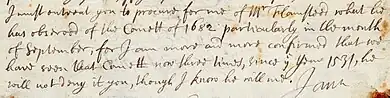 I must entreat you to procure for me of Mr Flamsteed what he
has observed of the Comett of 1682 particularly in the month
of September, for I am more and more confirmed that we
have seen that Comett now three times, since ye year 1531, he
will not deny it you, though I know he will me. I am